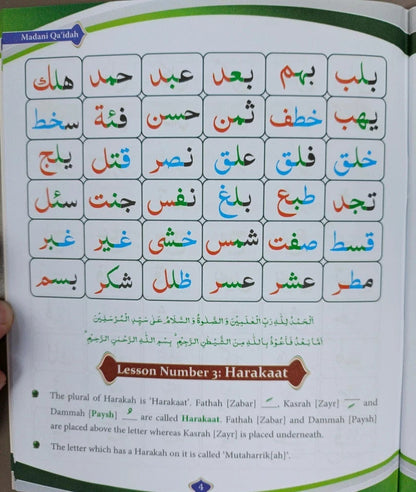 Madani Qa'idah
بلب بهم بعد عبد حمد هلك
يهب خطف ثمن حسن فئة سخط
خلق فلق علق نصر قتل يلج
تجد طبع بلغ نفس جنت سئل
قسط صفت شمس خشى غير غبر
مطر عشر عسر ظلل شكر بسم
اَلْحَمْدُ لِلّٰهِ رَبِّ الْعٰلَمِيْنَ وَالصَّلٰوةُ وَالسَّلَامُ عَلٰى سَيِّدِ الْمُرْسَلِيْنَ
اَمَّا بَعْدُ فَاَعُوْذُ بِاللّٰهِ مِنَ الشَّيْطٰنِ الرَّجِيْمِ ؕ بِسْمِ اللّٰهِ الرَّحْمٰنِ الرَّحِيْمِ ؕ
Lesson Number 3: Harakaat
The plural of Harakah is 'Harakaat'. Fathah [Zabar] َ , Kasrah [Zayr] ِ and
Dammah [Paysh] ُ are called Harakaat. Fathah [Zabar] and Dammah [Paysh]
are placed above the letter whereas Kasrah [Zayr] is placed underneath.
The letter which has a Harakah on it is called 'Mutaharrik[ah]'.
4